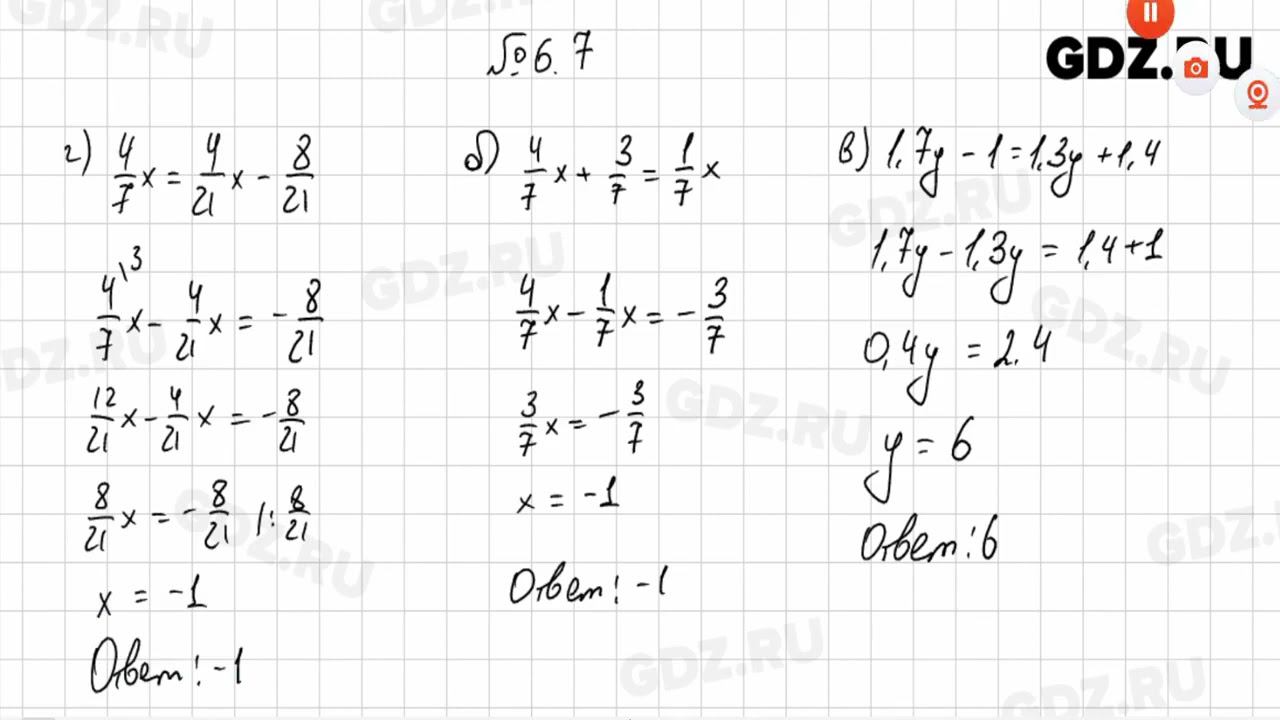 №6.7
GDZ.RU
г) 4/7 x = 4/21 x - 8/21
4/7 \3 x - 4/21 x = - 8/21
12/21 x - 4/21 x = - 8/21
8/21 x = - 8/21 |: 8/21
x = -1
Ответ: -1
б) 4/7 x + 3/7 = 1/7 x
4/7 x - 1/7 x = - 3/7
3/7 x = - 3/7
x = -1
Ответ: -1
в) 1,7y - 1 = 1,3y + 1,4
1,7y - 1,3y = 1,4 + 1
0,4y = 2.4
y = 6
Ответ: 6
GDZ.RU
GDZ.RU
GDZ.RU
GDZ.RU
GDZ.RU
GDZ.RU
GDZ.RU
GDZ.RU
GDZ.RU
GDZ.RU
GDZ.RU